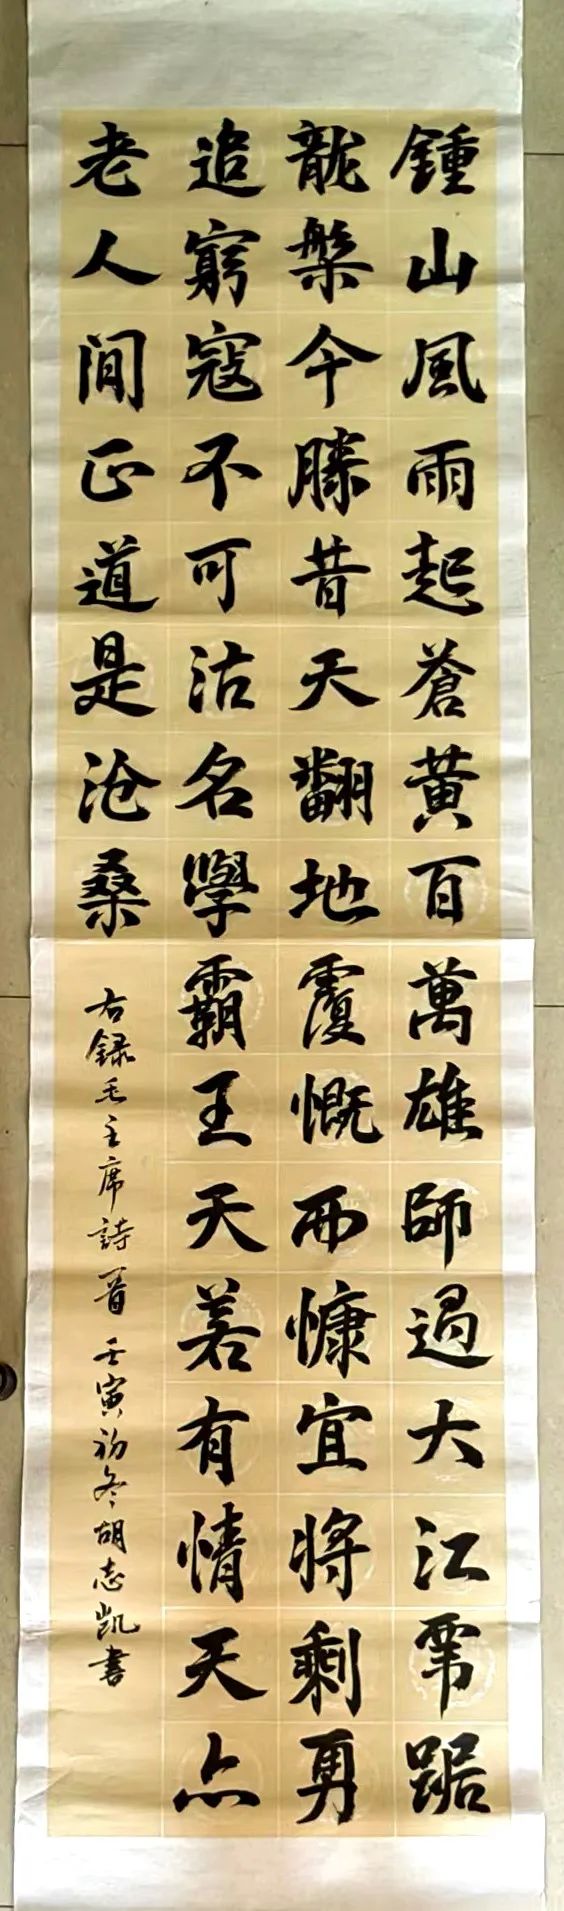 鍾山風雨起蒼黃百萬雄師過大江虎踞
龍槃今勝昔天翻地覆慨而慷宜将剩勇
追窮寇不可沽名學霸王天若有情天亦
老人间正道是沧桑
右録毛主席詩一首 壬寅初冬胡志凱書